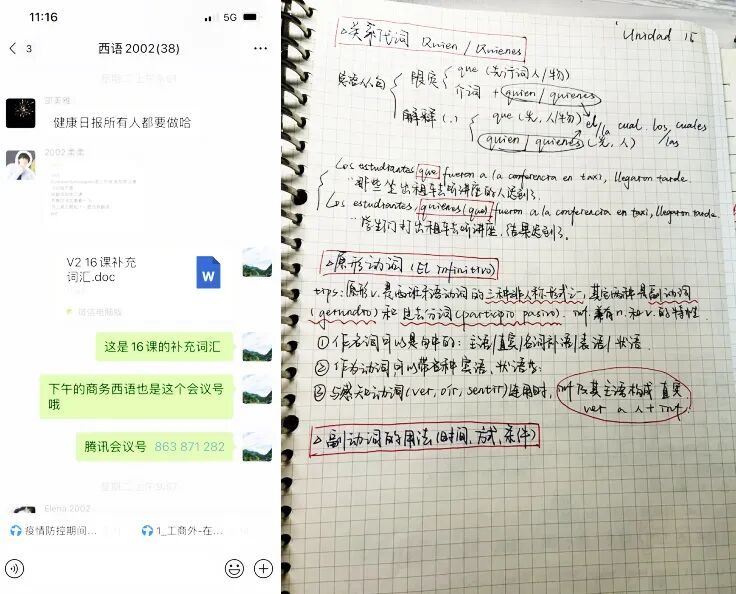 11:16
5G
3
西语2002(38)
健康日报所有人都要做哈
2002
V2 16课补充
词汇.doc
W
这是16课的补充词汇
下午的商务西语也是这个会议号
哦
腾讯会议号 863 871 282
Elena 2002
疫情防控期间...
1_工商外-在...
Unidad 15
△关系代词 Quien / Quienes
定语从句
限定
que (先行词人/物)
介词 + quien / quienes
解释 (,)
que (先,人/物)
el/la cual. los/las cuales
quien / quienes (先,人)
Los estudiantes que fueron a la conferencia en taxi, llegaron tarde.
那些坐出租车去听讲座的人迟到了
Los estudiantes, quienes (que) fueron a la conferencia en taxi, llegaron tarde.
学生们打出租车去听讲座,结果迟到了。
△原形动词 (El infinitivo)
tips: 原形v.是西班牙语动词的三种非人称形式之一,其它两种是副动词
(gerundio) 和过去分词 (participio pasivo). inf.兼有n.和v.的特性.
① 作名词可以是句中的: 主语/直宾/名词补语/表语/状语.
② 作为动词,可以带各种宾语,状语等.
③ 与感知动词 (ver, oír, sentir) 连用时, inf及其主语构成直宾
ver a 人 + inf.
△副动词的用法 (时间、方式、条件)